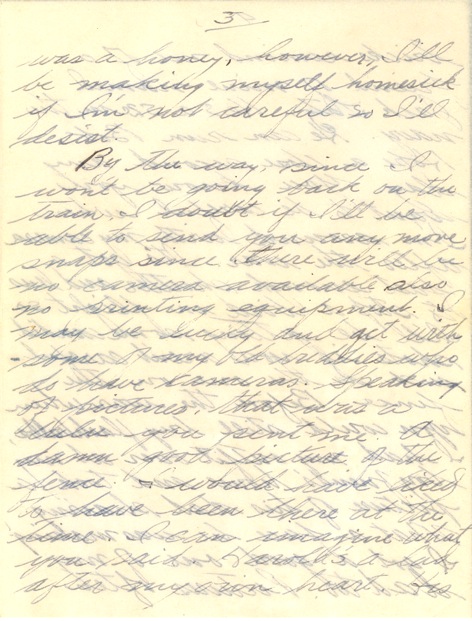 3
was a honey, however, I'll
be making myself homesick
if I'm not careful so I'll
desist.
By the way, since I
won't be going back on the
train I doubt if I'll be
able to send you any more
snaps since there will be
no camera available also
no printing equipment. I
may be lucky and get with
some of my old buddies who
do have cameras. Speaking
of pictures, that was a
you sent me. A
damn good picture of the
fence. I would have liked
to have been there at the
time. I can imagine what
you said. Harold's a lad
after my own heart. His